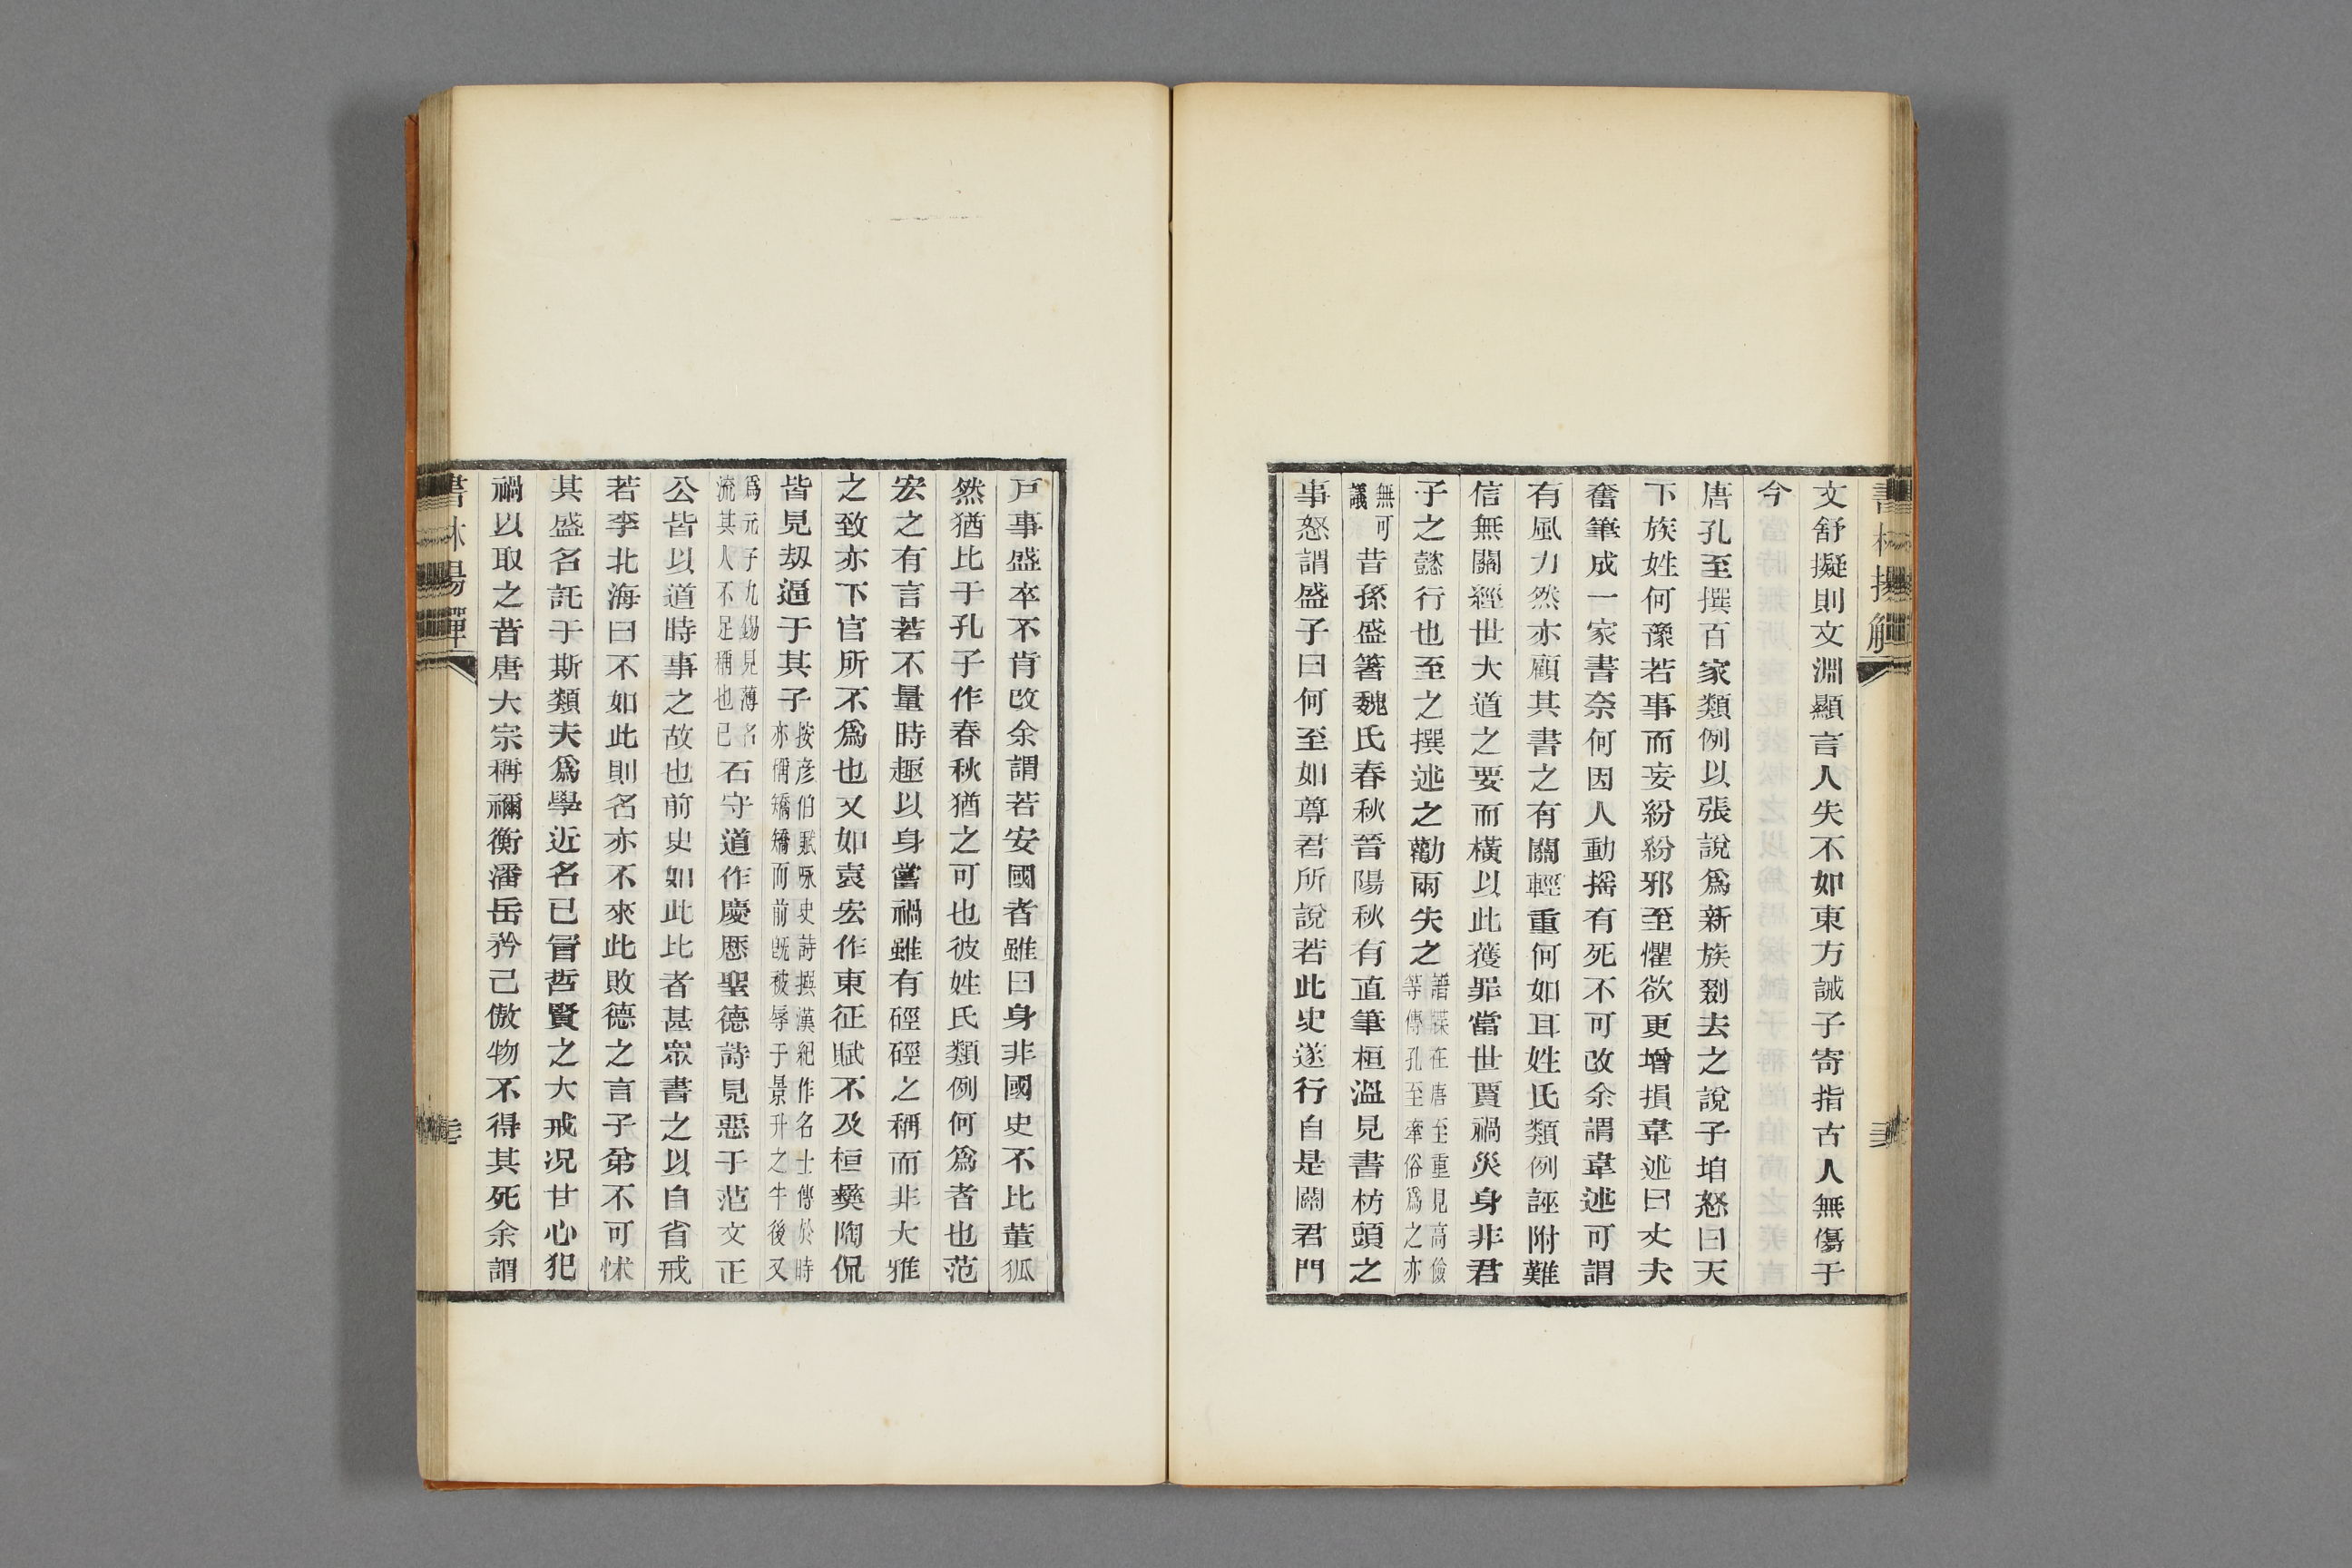 文舒擬則文淵顯言人失不如東方誡子寄指古人無傷于
今
唐孔至撰百家類例以張說爲新族剟去之說子垍怒曰天
下族姓何豫若事而妄紛紛邪至懼欲更增損韋述曰丈夫
奮筆成一家書柰何因人動搖有死不可改余謂韋述可謂
有風力然亦顧其書之有關輕重何如耳姓氏類例誣附難
信無關經世大道之要而橫以此獲罪當世賈禍災身非君
子之懿行也至之撰述之勸兩失之譜牒在唐至重見高儉
等傳孔至牽俗爲之亦
無可
議昔孫盛箸魏氏春秋晉陽秋有直筆桓溫見書枋頭之
事怒謂盛子曰何至如尊君所說若此史遂行自是關君門
戸事盛卒不肯改余謂若安國者雖曰身非國史不比董狐
然猶比于孔子作春秋猶之可也彼姓氏類例何爲者也范
宏之有言若不量時趣以身嘗禍雖有硜硜之稱而非大雅
之致亦下官所不爲也又如袁宏作東征賦不及桓彝陶侃
皆見刼逼于其子按彥伯賦詠史詩撰漢紀作名士傳於時
亦稱矯矯而前旣被辱于景升之牛後又
爲元子九錫見薄名
流其人不足稱也已石守道作慶厯聖德詩見惡于范文正
公皆以道時事之故也前史如此比者甚眾書之以自省戒
若李北海曰不如此則名亦不來此敗德之言子弟不可怵
其盛名託于斯類夫爲學近名已冒哲賢之大戒况甘心犯
禍以取之昔唐大宗稱禰衡潘岳矜己傲物不得其死余謂
書林揚觶